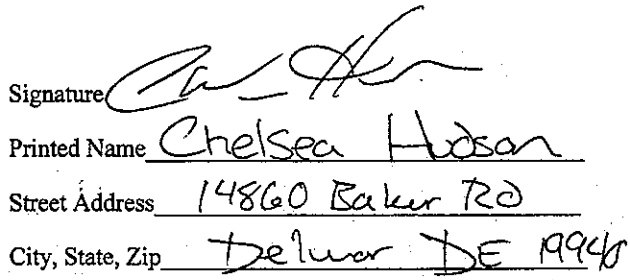 Signature
Printed Name Chelsea Hudson
Street Address 14860 Baker RD
City, State, Zip Delmar DE 19940